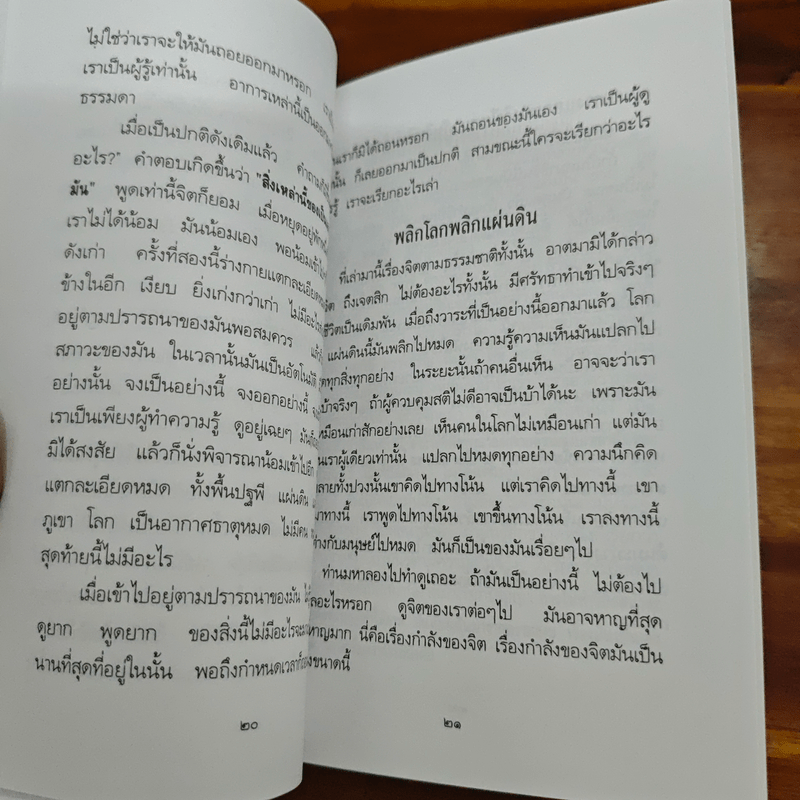 ไม่ใช่ว่าเราจะให้มันถอยออกมาหรอก
เราเป็นผู้รู้เท่านั้น อาการเหล่านี้เป็นออกมา
ธรรมดา
เมื่อเป็นปกติดังเดิมแล้ว
อะไร?" คำตอบเกิดขึ้นว่า "สิ่งเหล่านี้ของเป็น
มัน" พูดเท่านี้จิตก็ยอม เมื่อหยุดอยู่พัก
เราไม่ได้น้อม มันน้อมเอง พอน้อมเข้า
ดังเก่า ครั้งที่สองนี้ร่างกายแตกละเอียด
ข้างในอีก เงียบ ยิ่งเก่งกว่าเก่า ไม่มีอะไร
อยู่ตามปรารถนาของมันพอสมควร
สภาวะของมัน ในเวลานั้นมันเป็นอัตโนมัติ
อย่างนั้น จงเป็นอย่างนี้ จงออกอย่างนี้
เราเป็นเพียงผู้ทำความรู้ ดูอยู่เฉยๆ
มิได้สงสัย แล้วก็นั่งพิจารณาน้อมเข้าไปอีก
แตกละเอียดหมด ทั้งพื้นปฐพี แผ่นดิน
ภูเขา โลก เป็นอากาศธาตุหมด ไม่มีคน
สุดท้ายนี้ไม่มีอะไร
เมื่อเข้าไปอยู่ตามปรารถนาของมัน
ดูยาก พูดยาก ของสิ่งนี้ไม่มีอะไรจะ
นานที่สุดที่อยู่ในนั้น พอถึงกำหนดเวลาก็
๒๐
เราก็มิได้ถอนหรอก มันถอนของมันเอง เราเป็นผู้ดู
ก็เลยออกมาเป็นปกติ สามขณะนี้ใครจะเรียกว่าอะไร
เราจะเรียกอะไรเล่า
พลิกโลกพลิกแผ่นดิน
ที่เล่ามานี้เรื่องจิตตามธรรมชาติทั้งนั้น อาตมามิได้กล่าว
ถึงเจตสิก ไม่ต้องอะไรทั้งนั้น มีศรัทธาทำเข้าไปจริงๆ
ชีวิตเป็นเดิมพัน เมื่อถึงวาระที่เป็นอย่างนี้ออกมาแล้ว โลก
แผ่นดินนี้มันพลิกไปหมด ความรู้ความเห็นมันแปลกไป
ทุกสิ่งทุกอย่าง ในระยะนั้นถ้าคนอื่นเห็น อาจจะว่าเรา
บ้าจริงๆ ถ้าผู้ควบคุมสติไม่ดีอาจเป็นบ้าได้นะ เพราะมัน
เหมือนเก่าสักอย่างเลย เห็นคนในโลกไม่เหมือนเก่า แต่มัน
เราผู้เดียวเท่านั้น แปลกไปหมดทุกอย่าง ความนึกคิด
ทั้งปวงนั้นเขาคิดไปทางโน้น แต่เราคิดไปทางนี้ เขา
มาทางนี้ เราพูดไปทางโน้น เขาขึ้นทางโน้น เราลงทางนี้
ต่างกับมนุษย์ไปหมด มันก็เป็นของมันเรื่อยๆไป
ท่านมหาลองไปทำดูเถอะ ถ้ามันเป็นอย่างนี้ ไม่ต้องไป
อะไรหรอก ดูจิตของเราต่อๆไป มันอาจหาญที่สุด
หาญมาก นี่คือเรื่องกำลังของจิต เรื่องกำลังของจิตมันเป็น
ขนาดนี้
๒๑